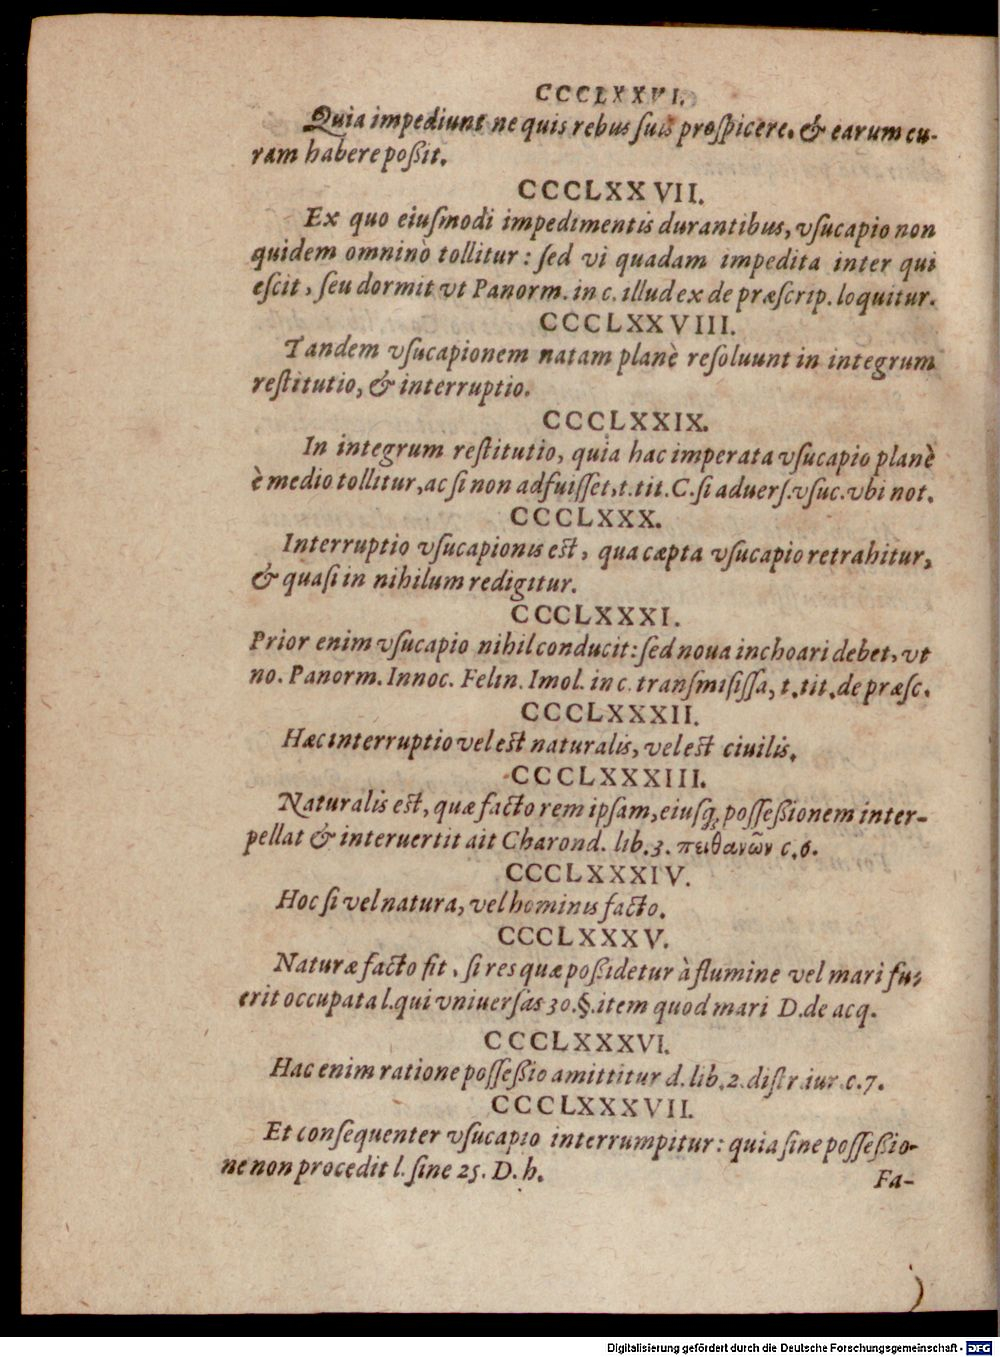 CCCLXXVI.
Quia impediunt ne quis rebus ſuis proſpicere, & earum cu-
ram habere poßit.
CCCLXXVII.
Ex quo eiuſmodi impedimentis durantibus, vſucapio non
quidem omninò tollitur: ſed vi quadam impedita inter qui
eſcit, ſeu dormit vt Panorm. in c. illud ex de præſcrip. loquitur.
CCCLXXVIII.
Tandem vſucapionem natam planè reſoluunt in integrum
reſtitutio, & interruptio.
CCCLXXIX.
In integrum reſtitutio, quia hac imperata vſucapio planè
è medio tollitur, ac ſi non adfuiſſet, t. tit. C. ſi aduerſ. vſuc. vbi not.
CCCLXXX.
Interruptio vſucapionis est, qua cæpta vſucapio retrahitur,
& quaſi in nihilum redigitur.
CCCLXXXI.
Prior enim vſucapio nihil conducit: ſed noua inchoari debet, vt
no. Panorm. Innoc. Felin. Imol. in c. tranſmiſiſſa, t. tit. de præſc.
CCCLXXXII.
Hæc interruptio vel est naturalis, vel est ciuilis.
CCCLXXXIII.
Naturalis est, quæ facto rem ipſam, eiusq́; poſſeßionem inter-
pellat & interuertit ait Charond. lib. 3. πειθανῶν c. 6.
CCCLXXXIV.
Hoc ſi vel natura, vel hominis facto.
CCCLXXXV.
Naturæ facto fit, ſi res quæ poßidetur à flumine vel mari fu-
erit occupata l. qui vniuerſas 30. §. item quod mari D. de acq.
CCCLXXXVI.
Hac enim ratione poſſeßio amittitur d. lib. 2. diſtr. iur. c. 7.
CCCLXXXVII.
Et conſequenter vſucapio interrumpitur: quia ſine poſſeßio-
ne non procedit l. ſine 25. D. h.
Fa-
Digitalisierung gefördert durch die Deutsche Forschungsgemeinschaft - DFG